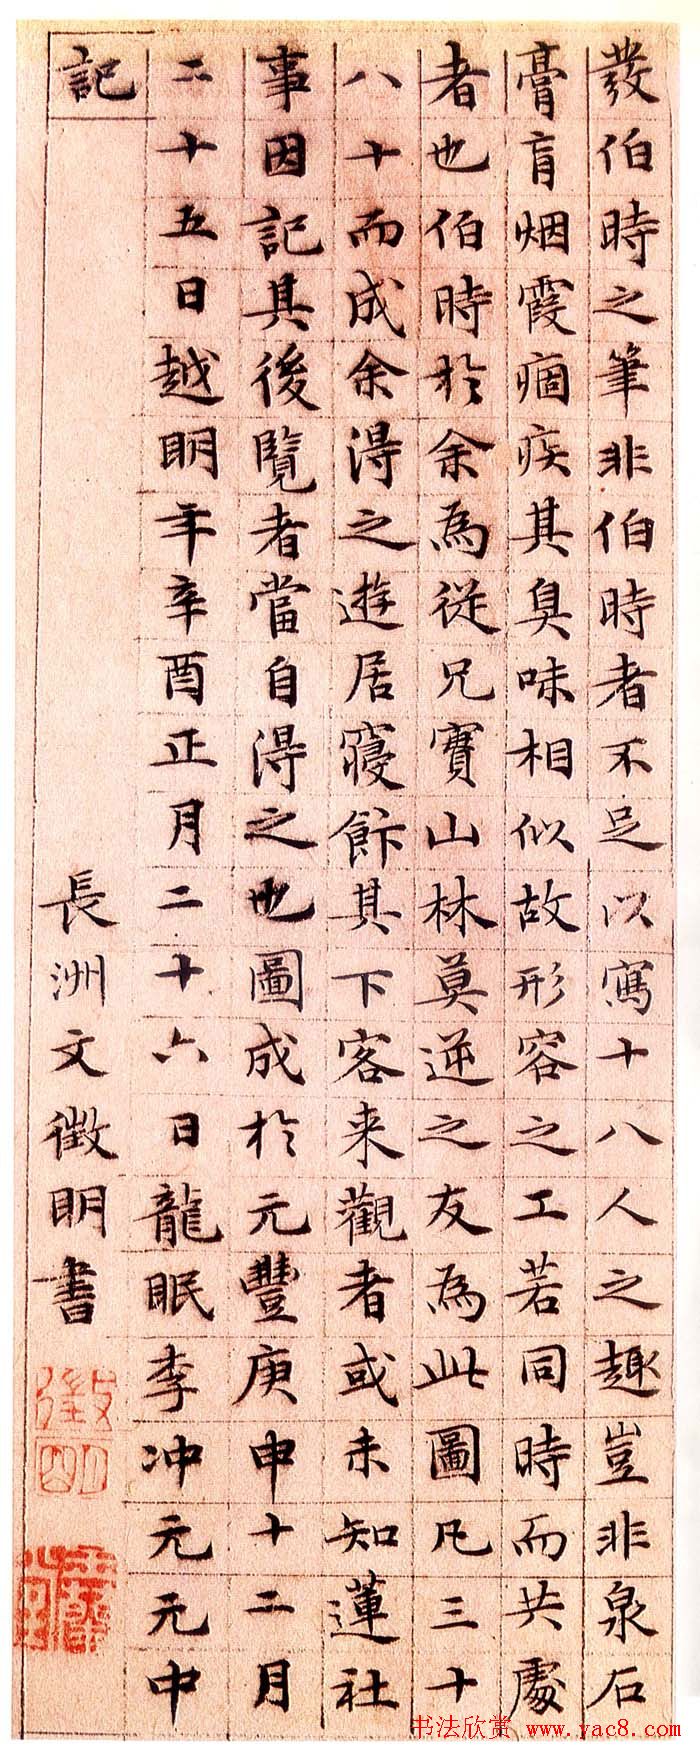 發伯時之筆非伯時者不足以寫十八人之趣豈非泉石
膏肓烟霞痼疾其臭味相似故形容之工若同時而共處
者也伯時於余為從兄實山林莫逆之友為此圖凡三十
八十而成余得之遊居寢飰其下客来觀者或未知蓮社
事因記其後覽者當自得之也圖成於元豐庚申十二月
二十五日越明年辛酉正月二十六日龍眠李冲元元中
記
長洲文徵明書
徵明
书法欣赏 www.yac8.com